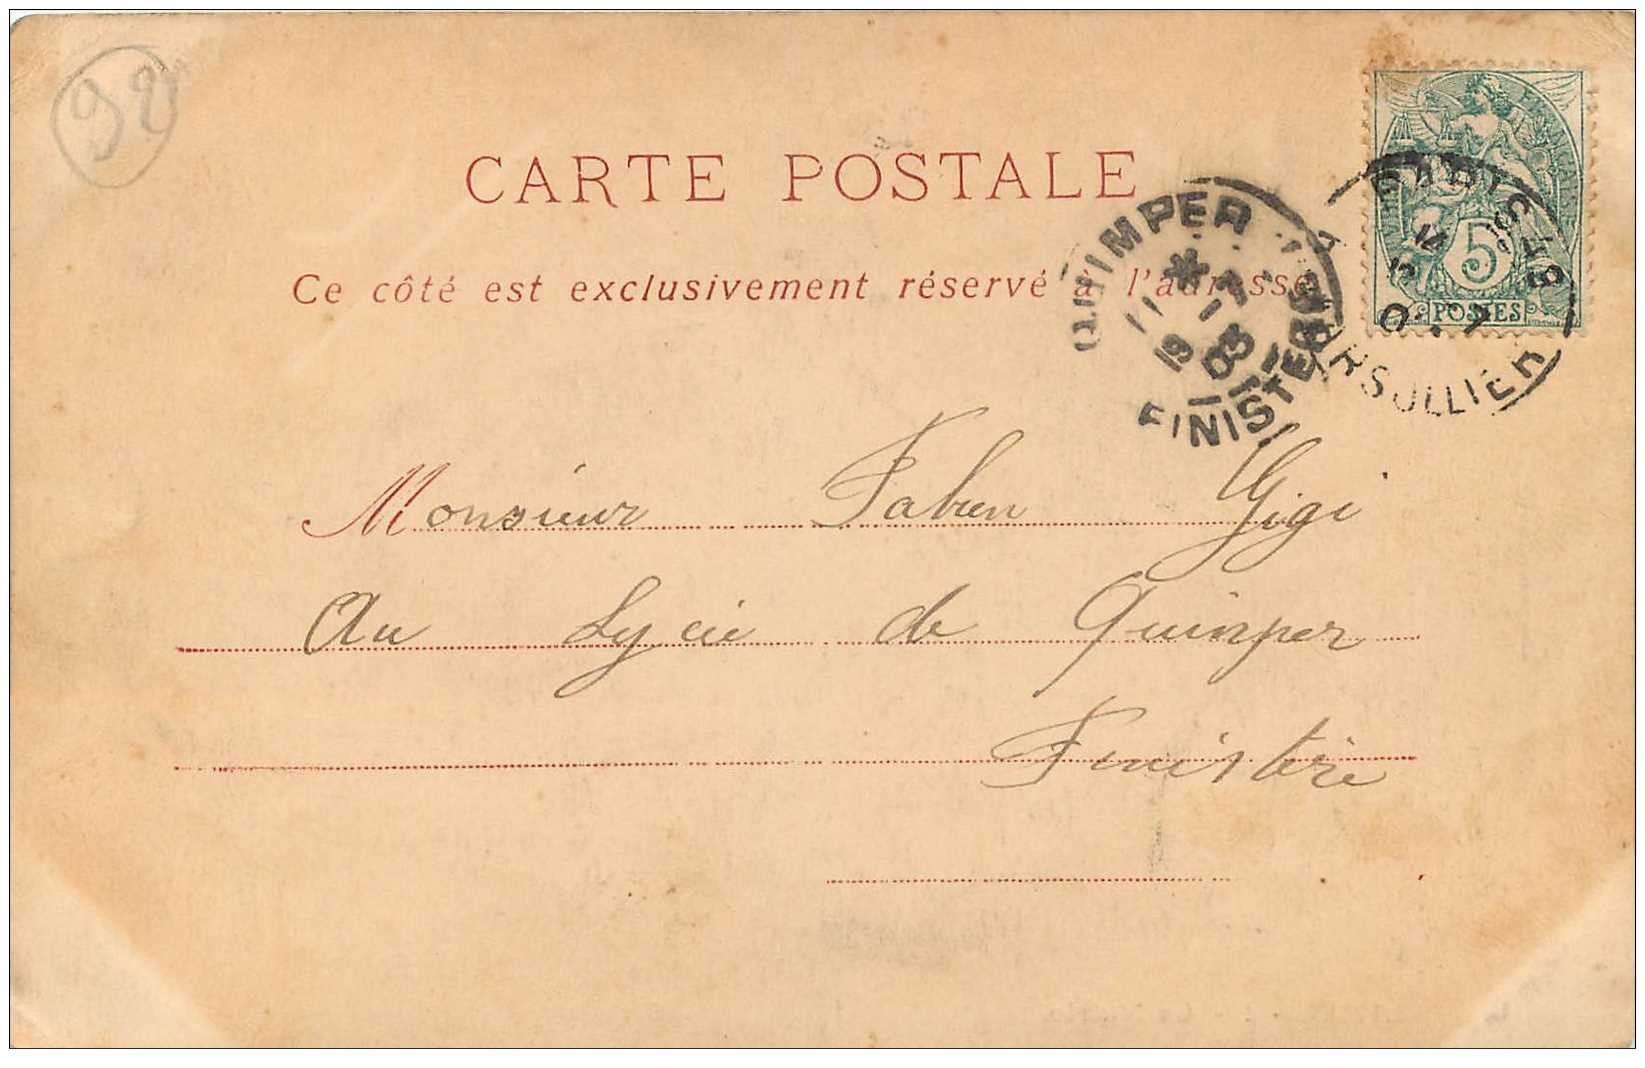 92
CARTE POSTALE
Ce côté est exclusivement réservé à l'adresse
QUIMPER
*
11 -7
19 03
FINISTERE
PARIS 49
R. MARSOLLIER
5
POSTES
Monsieur Fabien Gigi
Au Lycée de Quimper
Finistère